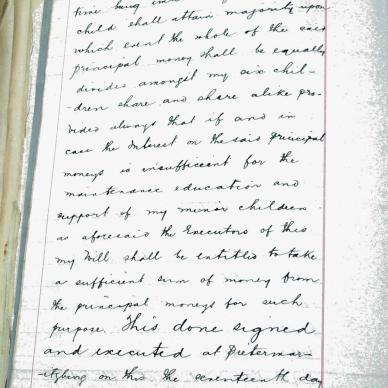 time being
child shall attain majority upon
which event the whole of the said
principal money shall be equally
divided amongst my six chil-
-dren share and share alike pro-
vided always that if and in
case the Interest on the said principal
moneys is insufficient for the
maintenance education and
support of my minor children
as aforesaid the Executors of this
my Will shall be entitled to take
a sufficient sum of money from
the principal moneys for such
purpose. This done signed
and executed at Pietermar-
-itzburg on this the seventeenth day